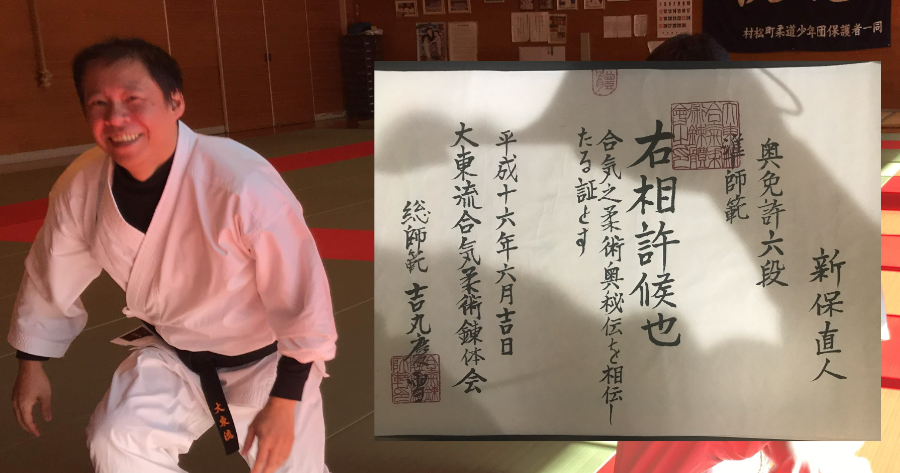 村松町柔道少年団保護者一同
新保直人
奥免許六段
準師範
右相許候也
合気之柔術奥秘伝を相伝し
たる証とす
平成十六年六月吉日
大東流合気柔術錬体会
総師範 吉丸慶雪
大東流